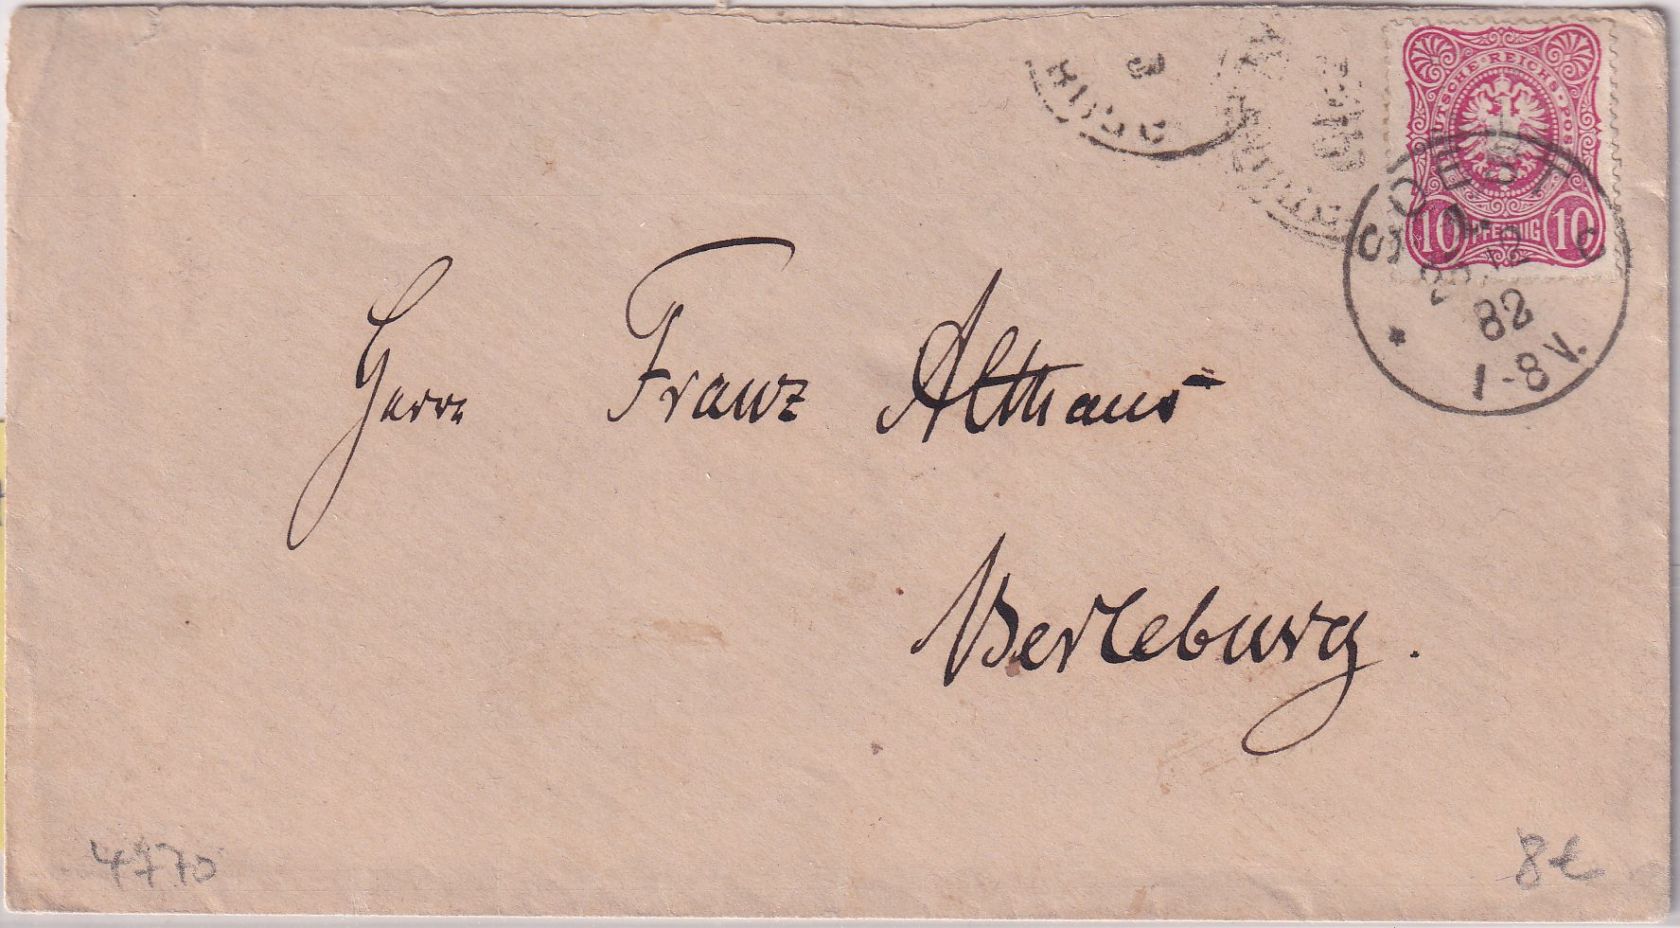 DEUTSCHE·REICHS·POST
10 PFENNIG 10
SOEST
* C
12
82
7-8 V.
Herrn Franz Althaus
Berleburg.
4770
8€